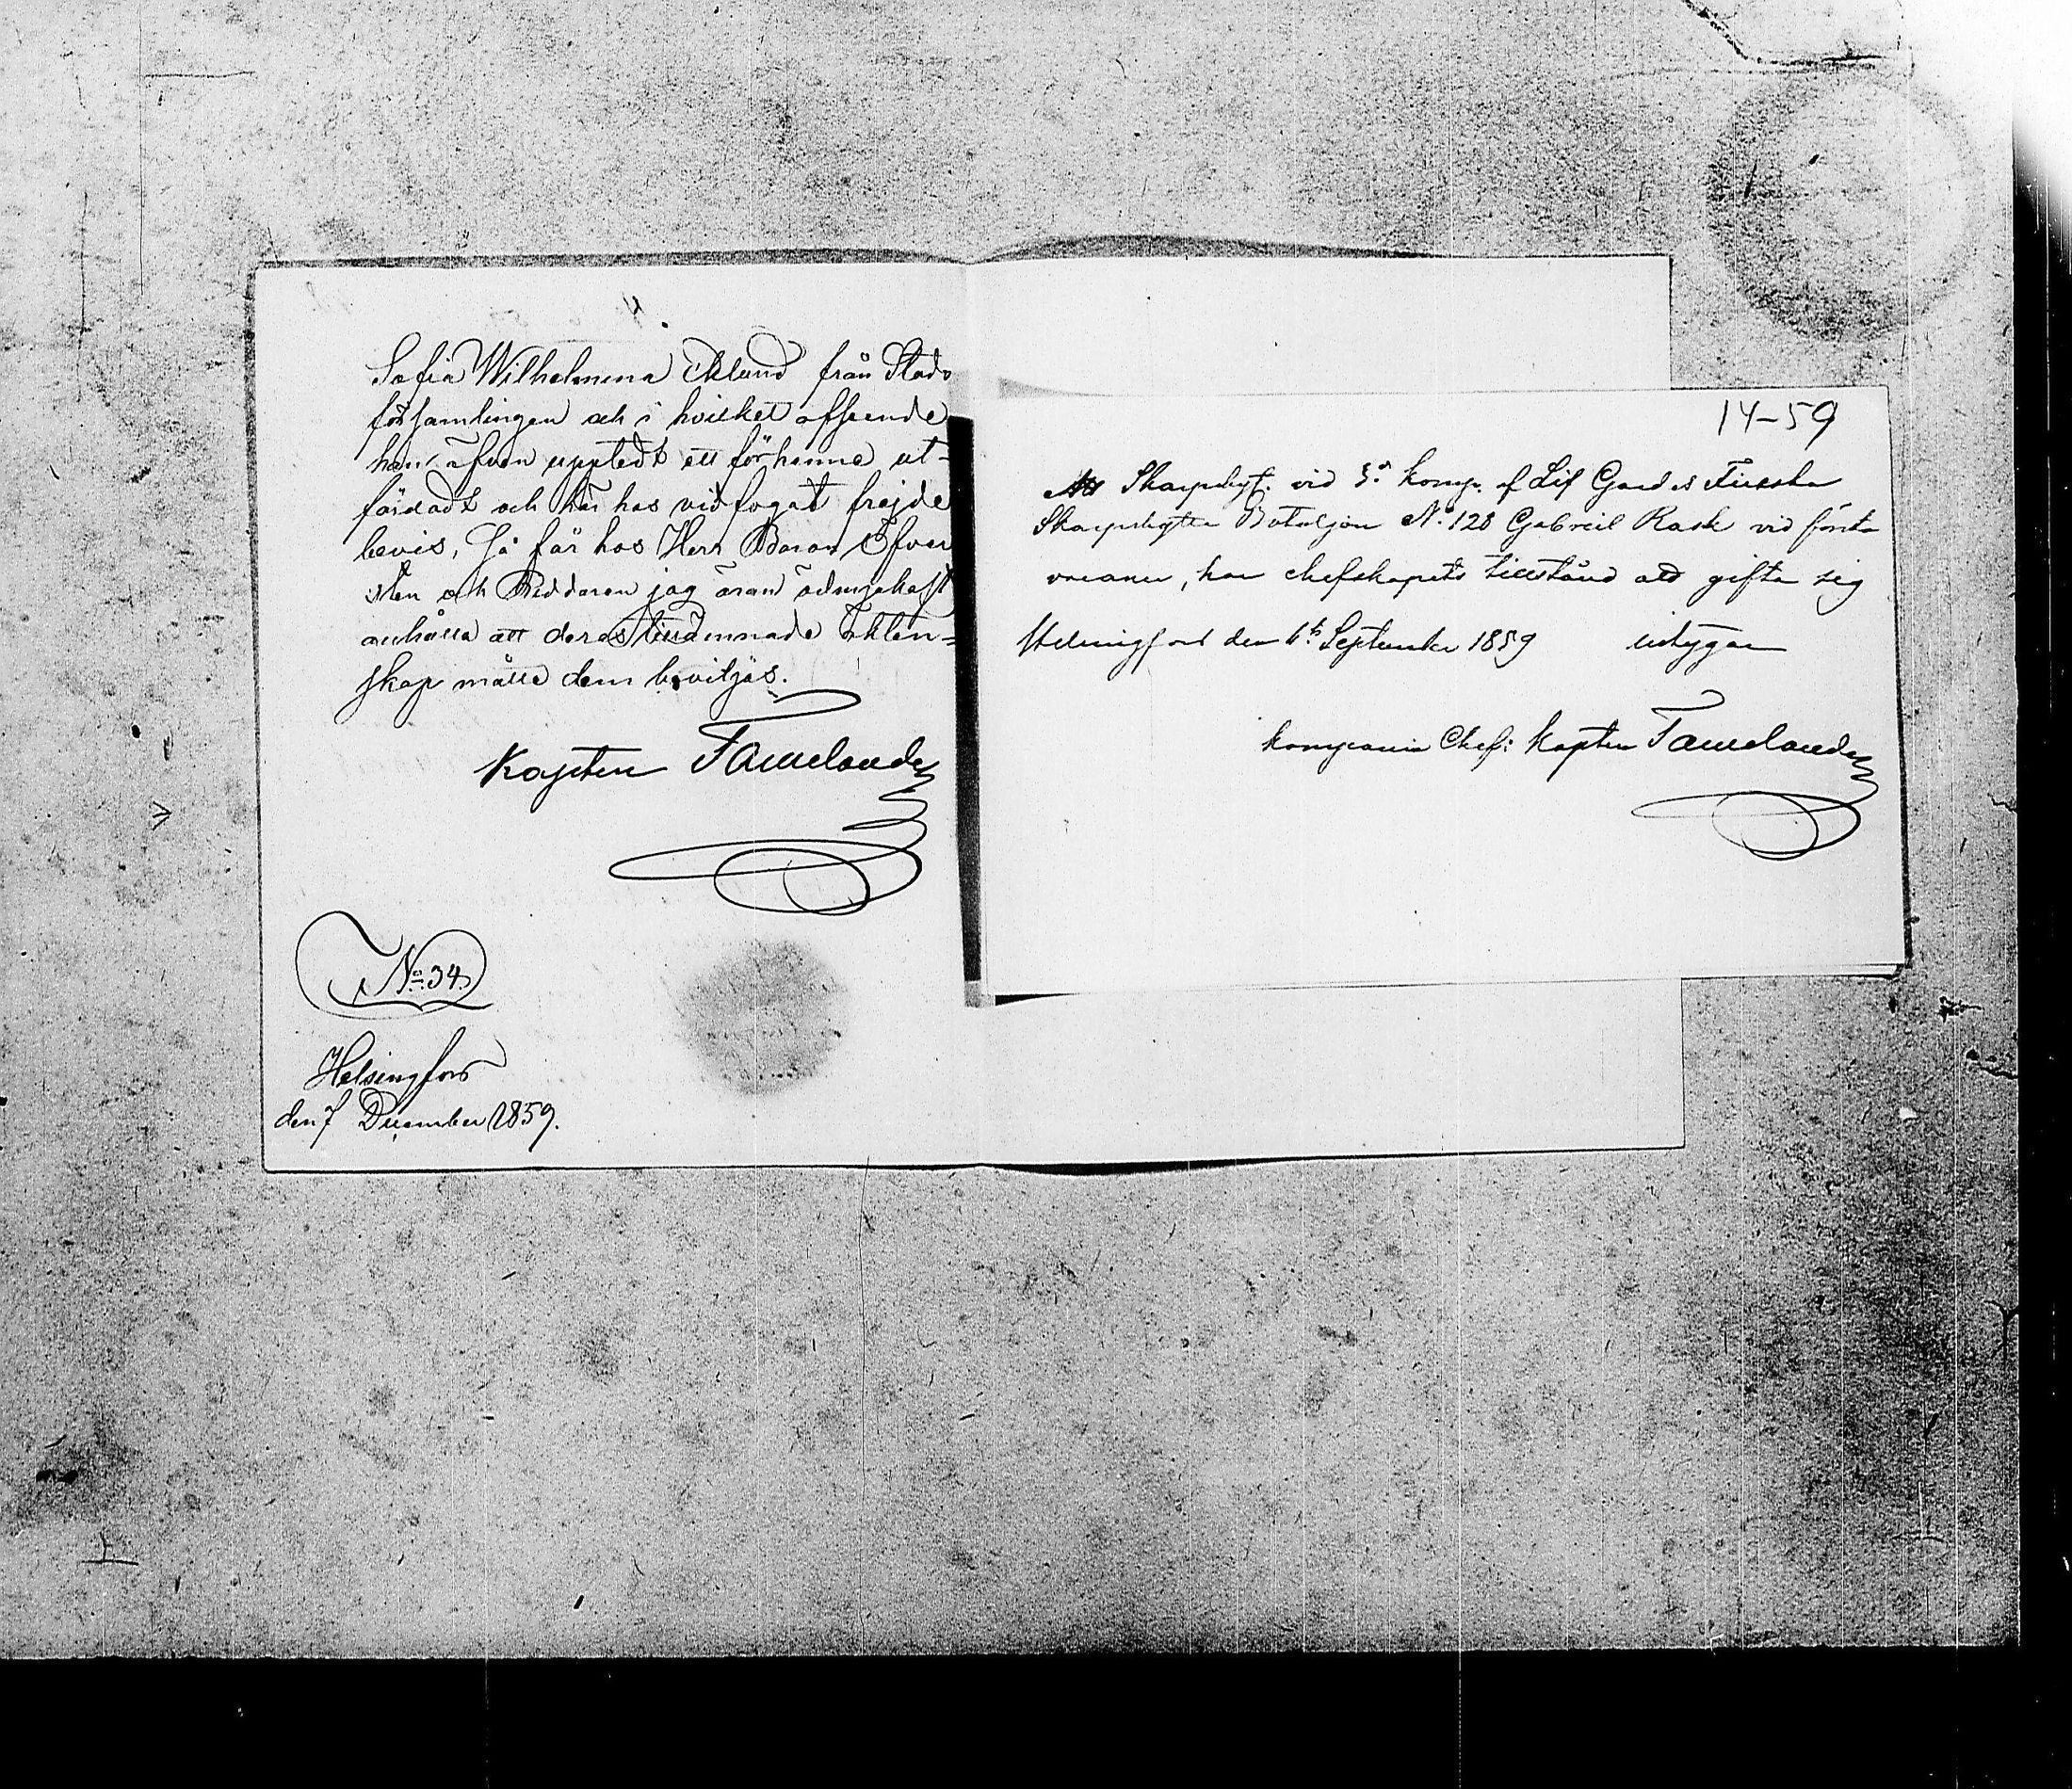 Sofia Wilhelmina Eklund från Stads
församlingen och i hvilket afseende
han äfven upptedt ett för henne ut-
färdadt och här hos vidfogat frejde
bevis, Så får hos Herr Baron Öfver
sten och Riddaren jag äran ödmjukast
anhålla att deras tillämnade Äkten-
skap måtte dem beviljas.
Kapten Tawelander
No 34,
Helsingfors
den 7 December 1859.
14-59
Att Skarpskyt. vid 3e komp. af Lif Gardes Finska
Skarpskytte Bataljon No 128 Gabriel Rask vid första
vocanu, har chefskapets tillstånd att gifta sig
Helsingfors den September 1859 intygar
kompanie Chef: Kapten Tawelander